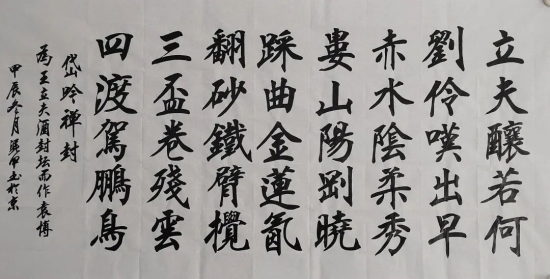 立夫釀若何
劉伶嘆出早
赤水陰柔秀
婁山陽剛曉
踩曲金蓮氤
翻砂鐵臂攪
三盃卷殘雲
四渡駕鵬鳥
岱吟禅封
為王立夫酒封坛而作袁博
甲辰冬月於京